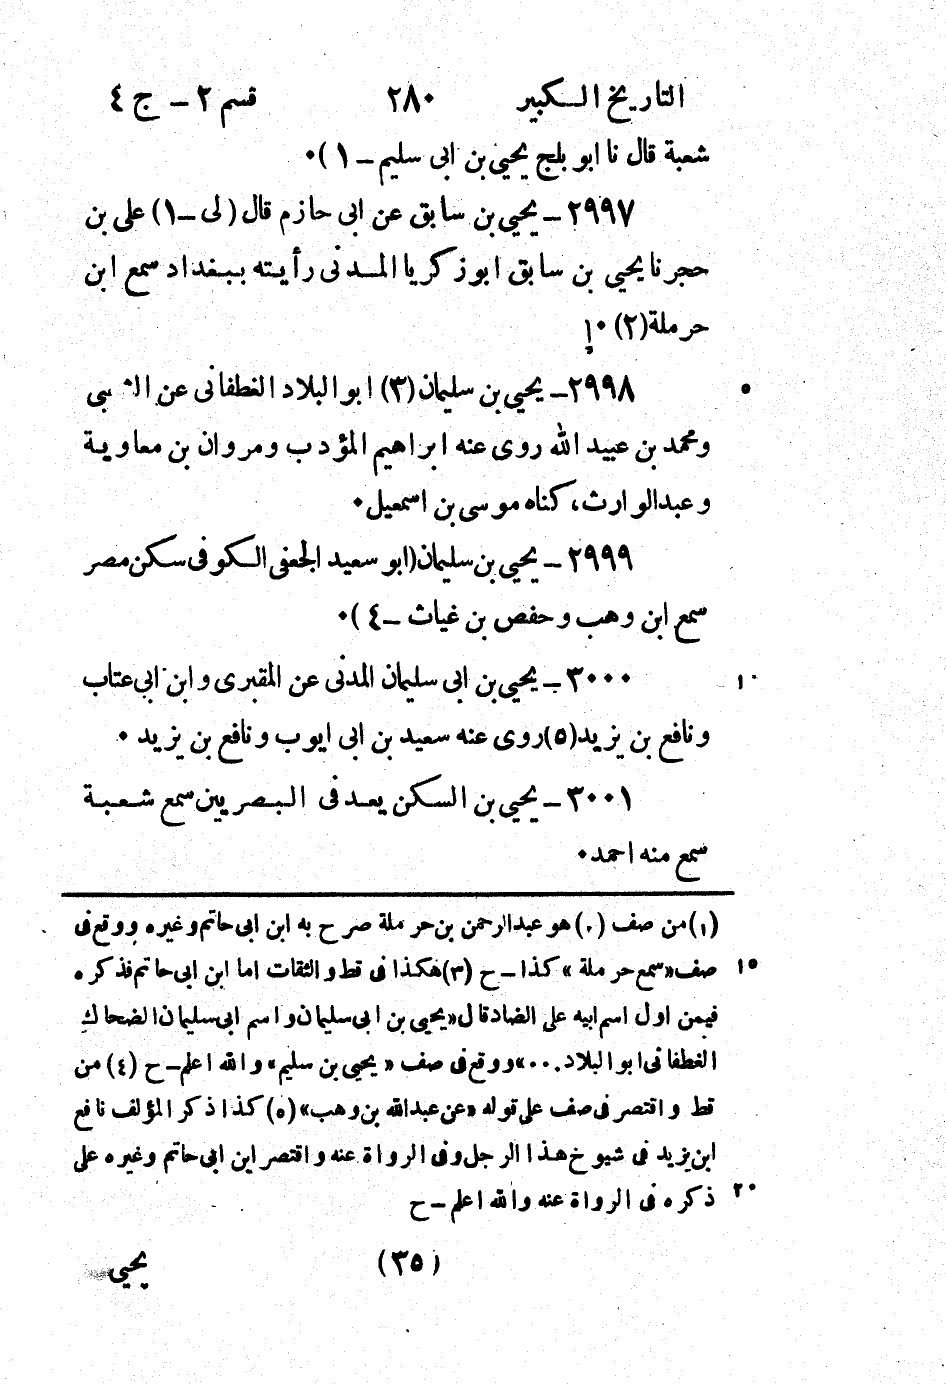 التاريخ الكبير ٢٨٠ قسم ٢ - ج ٤
شعبة قال نا ابو بلج يحيى بن ابى سليم - ١ )٠
٢٩٩٧ - يحيى بن سابق عن ابى حازم قال ( لى - ١ ) على بن
حجر نا يحيى بن سابق ابو زكريا المدنى رأيته ببغداد سمع ابن
حرملة (٢) ٠
٢٩٩٨ - يحيى بن سليمان (٣) ابو البلاد الغطفانى عن
٥
ومحمد بن عبيد الله روى عنه ابراهيم المؤدب ومروان بن معاوية
وعبدالوارث، كناه موسى بن اسمعيل٠
٢٩٩٩ - يحيى بن سليمان (ابو سعيد الجعفى الكوفى سكن مصر
سمع ابن وهب وحفص بن غياث - ٤ )٠
٣٠٠٠ - يحيى بن ابى سليمان المدنى عن المقبرى وابن ابى عتاب
١٠
ونافع بن يزيد (٥) روى عنه سعيد بن ابى ايوب ونافع بن يزيد ٠
٣٠٠١ - يحيى بن السكن يعد فى البصريين سمع شعبة
سمع منه احمد٠
(١) من صف (٠) هو عبدالرحمن بن حرملة صرح به ابن ابى حاتم وغيره ووقع فى
صف «سمع حرملة» كذا - ح (٣) هكذا فى قط والثقات اما ابن ابى حاتم فذكره
١٥
فيمن اول اسم ابيه على الضاد قال «يحيى بن ابى سليمان واسم ابى سليمان الضحاك
الغطفانى ابو البلاد ٠٠٠» ووقع فى صف « يحيى بن سليم» والله اعلم - ح (٤) من
قط واقتصر فى صف على قوله «عن عبدالله بن وهب» (٥) كذا ذكر المؤلف نافع
ابن يزيد فى شيوخ هذا الرجل وفى الرواة عنه واقتصر ابن ابى حاتم وغيره على
ذكره فى الرواة عنه والله اعلم - ح
٢٠
(٣٥) يحيى